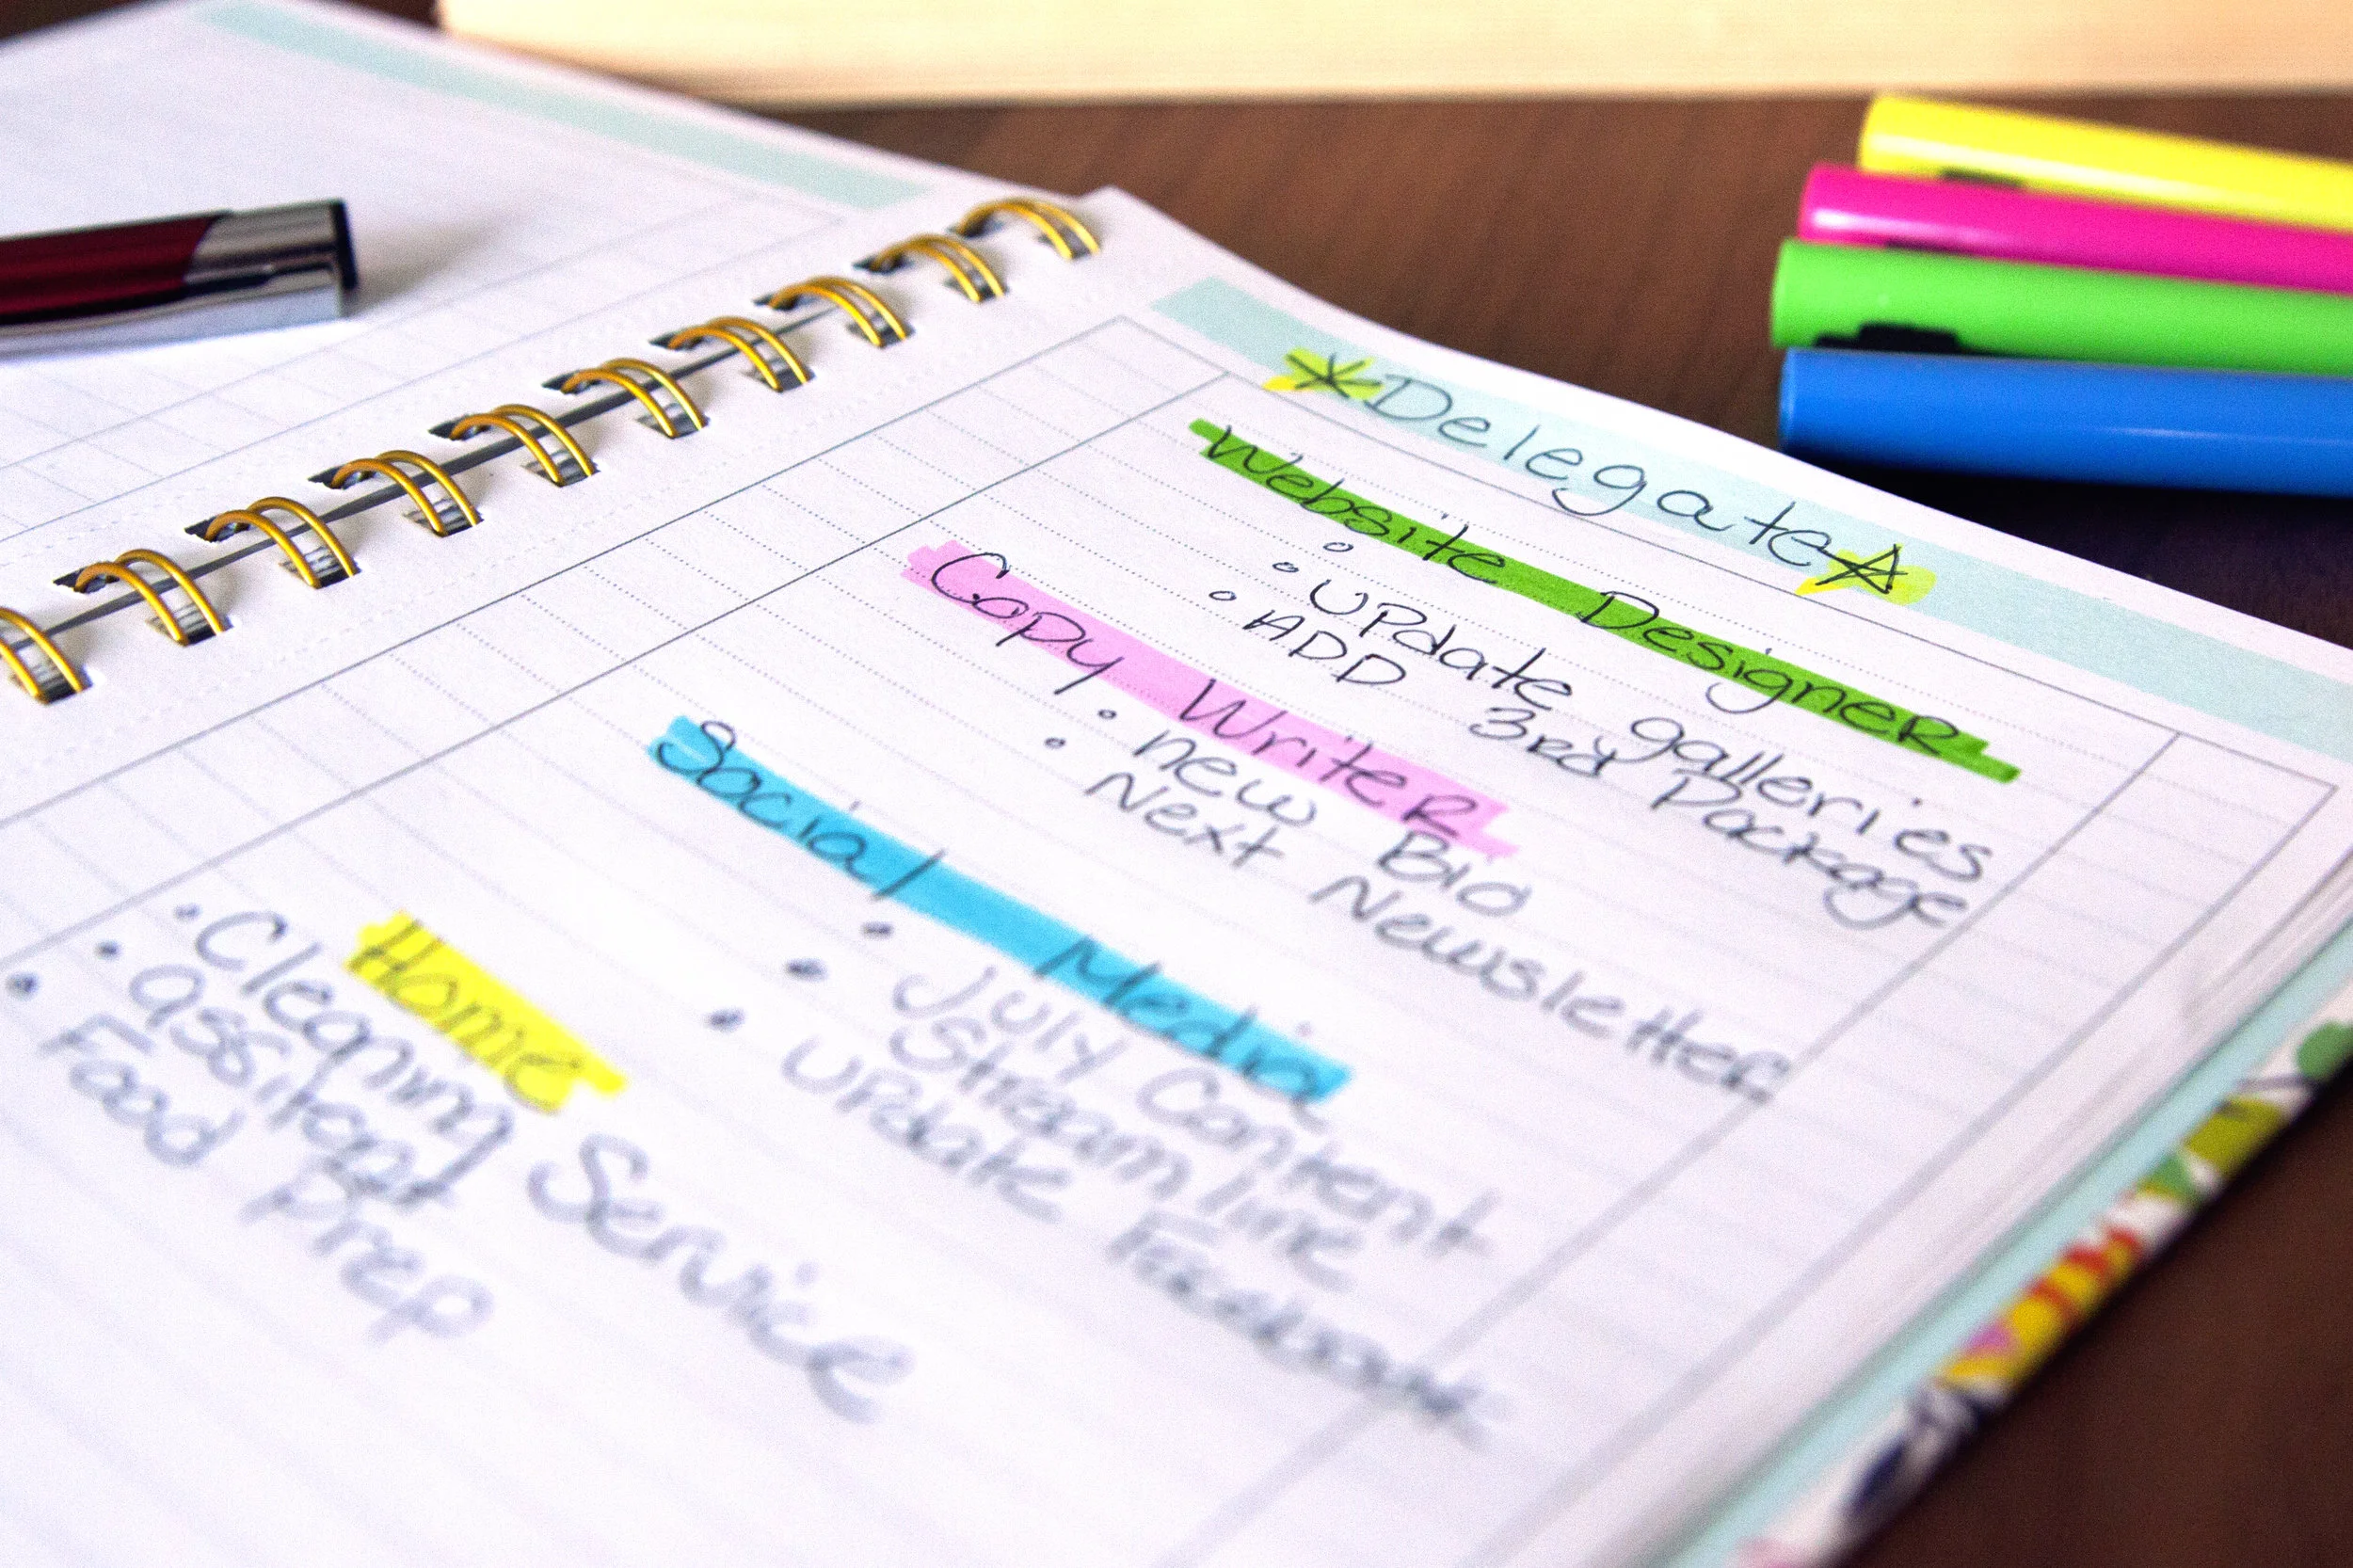 Delegate
Website Designer
Update galleries
ADD 3rd Package
Copy Writer
new Bio
Next Newsletter
Social Media
July Content
Streamline
Update Facebook
Home
Cleaning Service
assitant
Food Prep